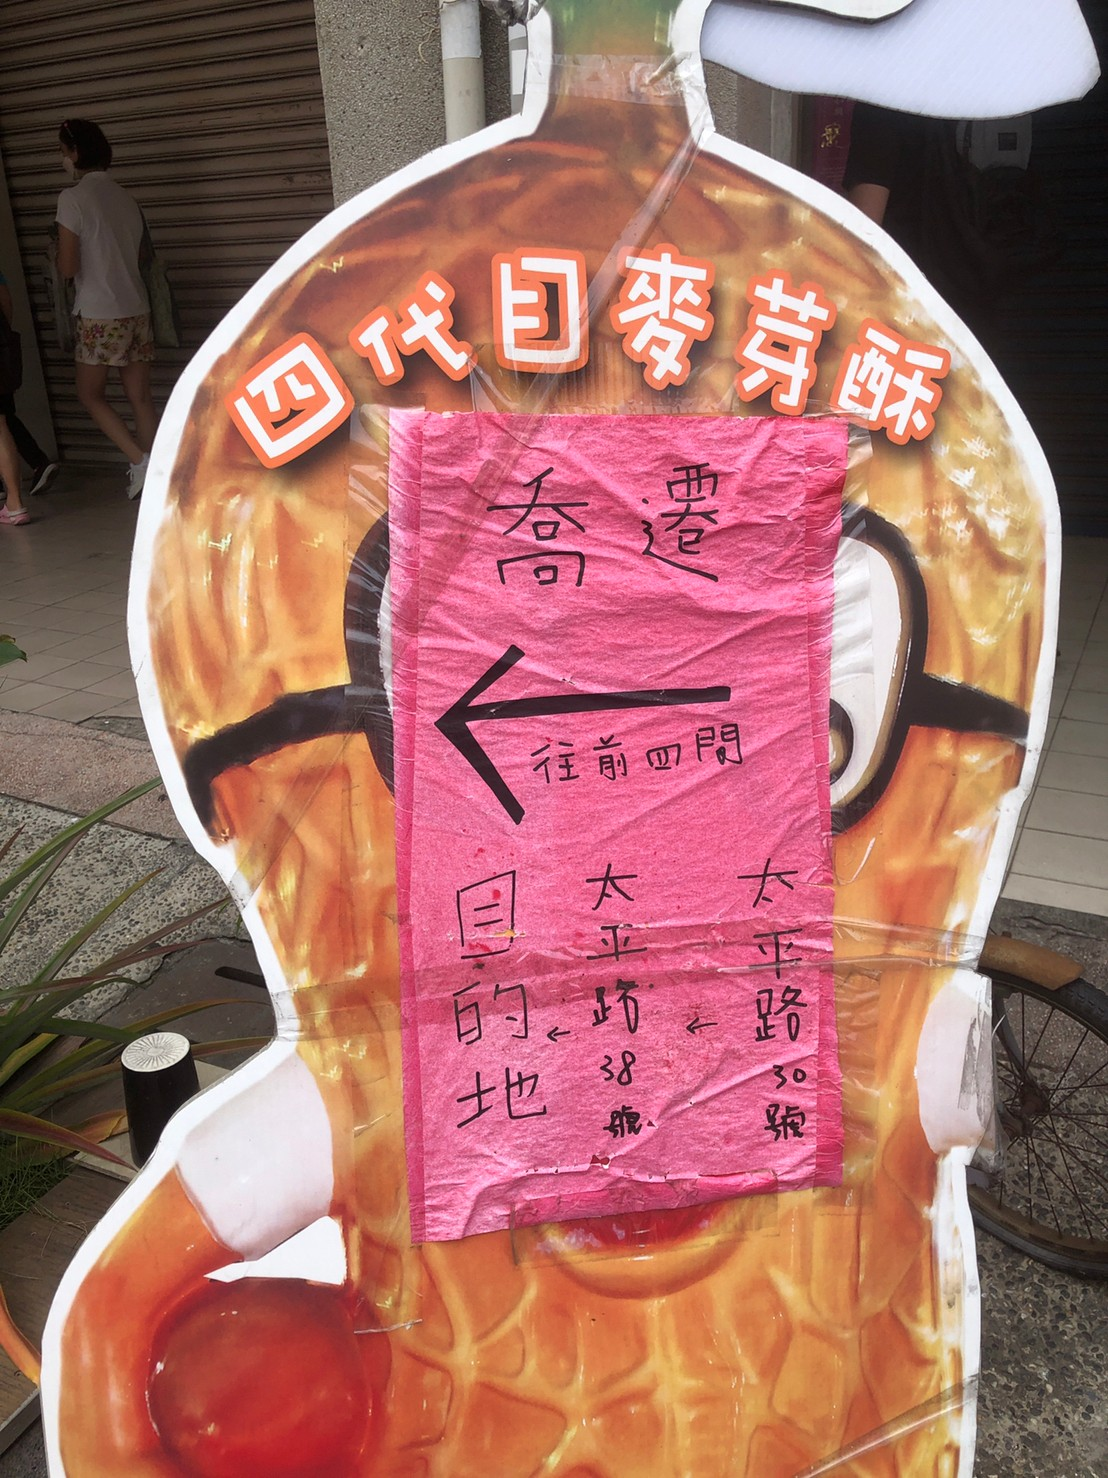 四代目麥芽酥
喬遷
往前四間
太平路30號
←
太平路38號
←
目的地